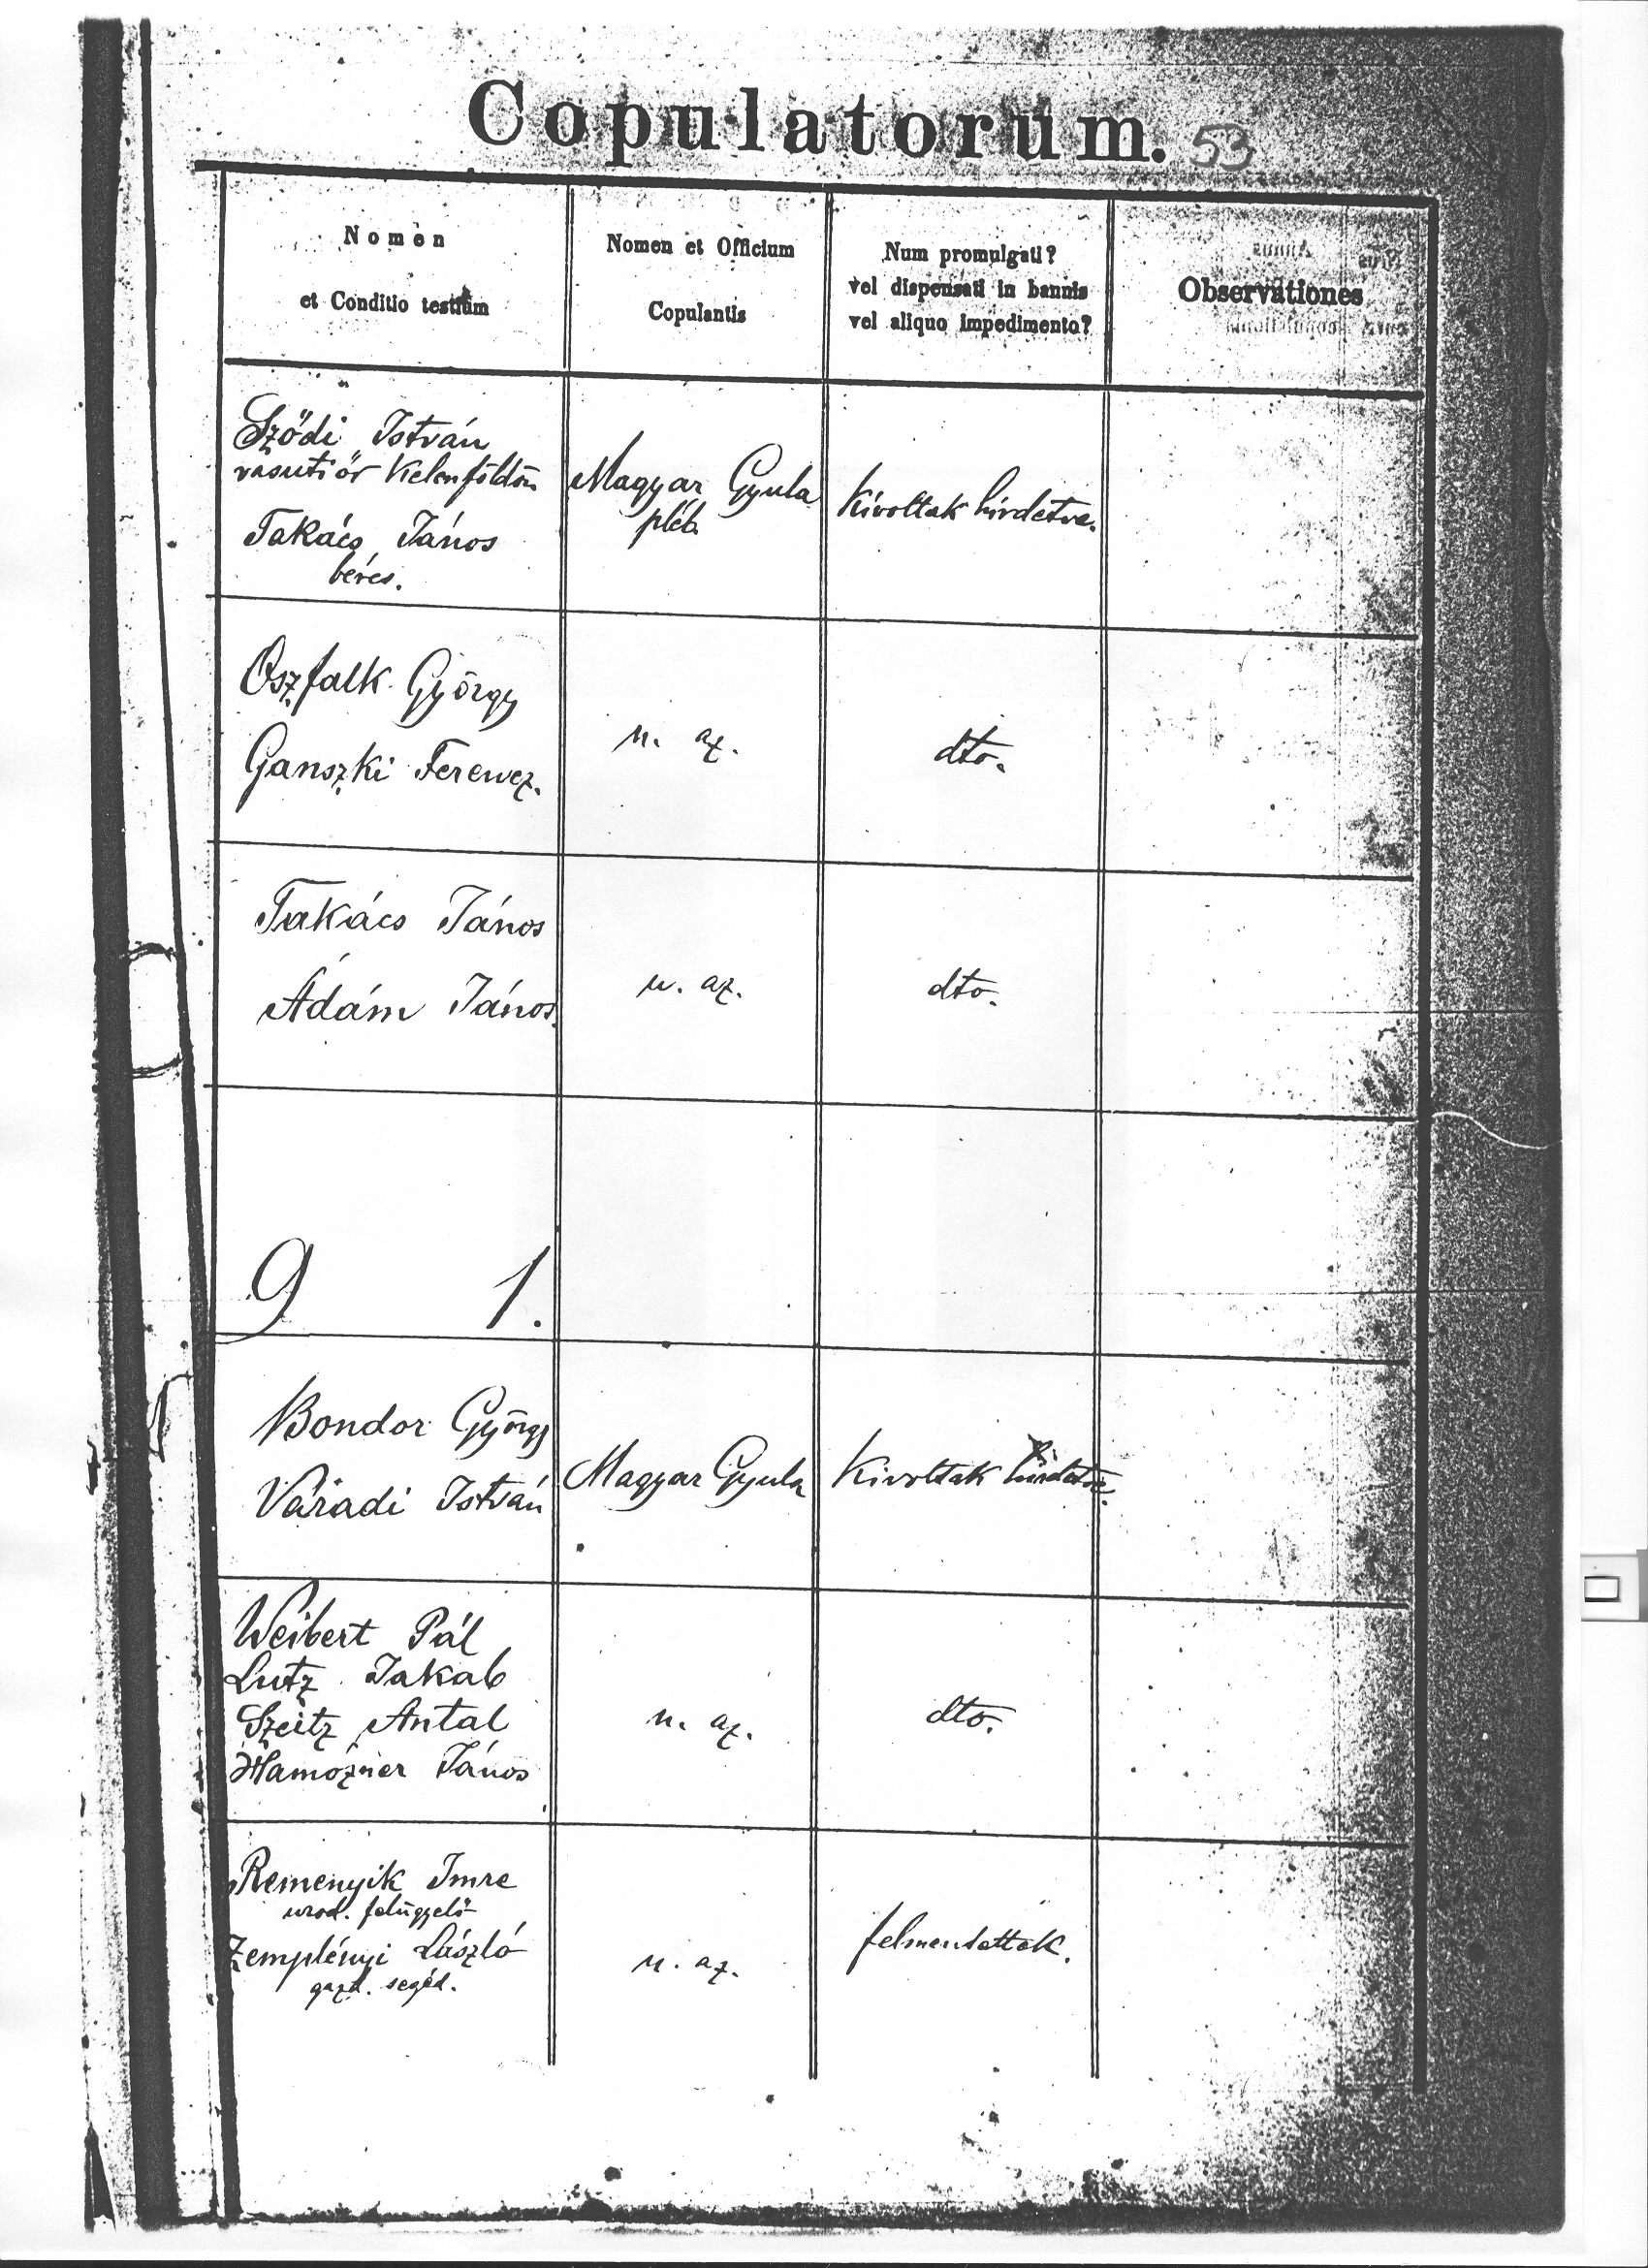 Copulatorum. 53
Nomen
et Conditio testium
Nomen et Officium
Copulantis
Num promulgati?
vel dispensati in bannis
vel aliquo impedimento?
Observationes
Sződi István
vasuti őr Kelenföldön
Takács János
béres.
Magyar Gyula
pléb.
Kivoltak hirdetve.
Oszfalk György
Ganszki Ferencz.
u. az.
dto.
Takács János
Ádám János.
u. az.
dto.
9 1.
Bondor György
Váradi István
Magyar Gyula
Kivoltak hirdetve.
Weibert Pál
Lutz Jakab
Szeitz Antal
János
u. az.
dto.
Remenyik Imre
urod. felügyelő
Zemplényi László
gazd. segéd.
u. az.
felmentettek.